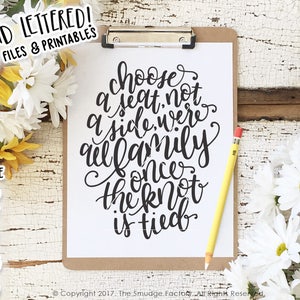 D LETTERED!
FILES & PRINTABLES
choose
a seat, not
a side, we're
all family
once
the knot
is tied
© Copyright 2017, The Smudge Factory